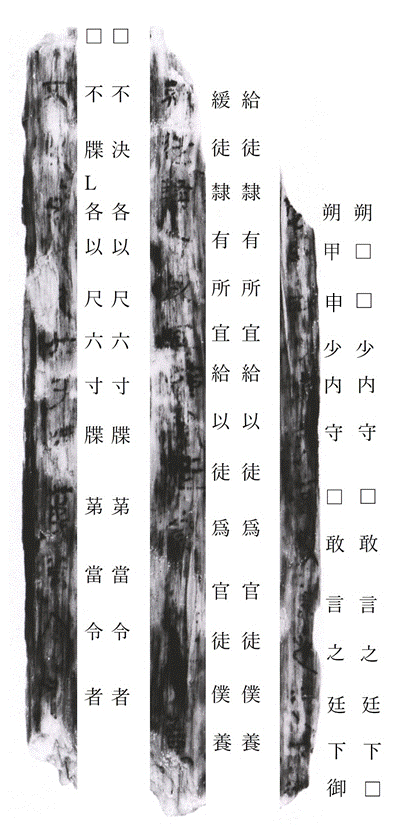 朔□□少内守□敢言之廷下□
朔甲申少内守□敢言之廷下御
給徒隸有所宜給以徒爲官徒僕養
緩徒隸有所宜給以徒爲官徒僕養
□不決各以尺六寸牒苐當令者
□不牒L各以尺六寸牒苐當令者